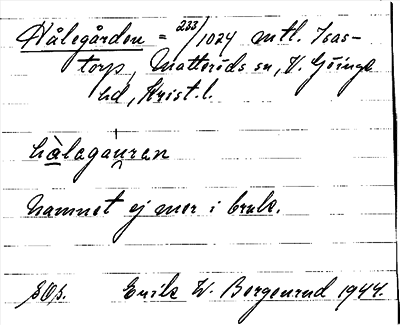 Hålegården = 233/1024 mtl. Isas-
torp, Matteröds sn, V. Göinge
hd, Krist. l.
hàlegauren
Namnet ej mer i bruk.
Erik W. Bergenrud 1944.